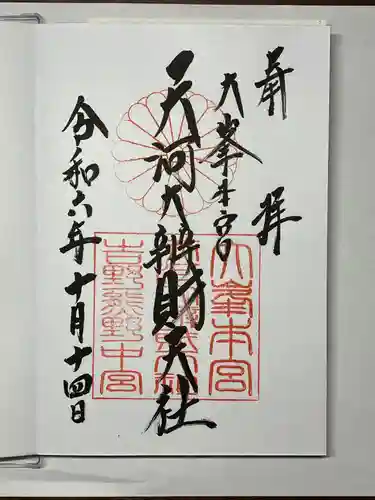 奉拝
大峯本宮
天河大辨財天社
令和六年十月十四日
大峯本宮
吉野熊野中宮